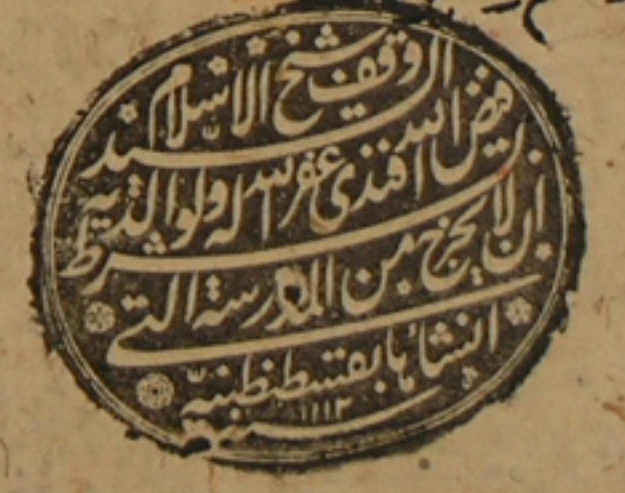 وقف شيخ الاسلام السيد
فيض الله افندى غفر الله له ولوالديه
بشرط ان لا يخرج من المدرسة التى
انشاها بقسطنطنيّه
سنه ١١١٢